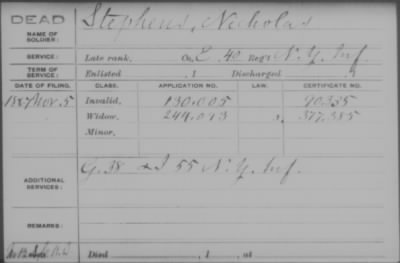 DEAD
NAME OF SOLDIER:
Stephens, Nicholas
SERVICE:
Late rank, Co. E. 40 Reg't N.Y. Inf.
TERM OF SERVICE:
Enlisted , 1 Discharged , 1
DATE OF FILING.
CLASS.
APPLICATION NO.
LAW.
CERTIFICATE NO.
Nov. 5
Invalid,
130.005
90.335
Widow,
377.385
Minor,
ADDITIONAL SERVICES:
G. 38 & I 55 N.Y. Inf.
REMARKS:
Died , 1 , at